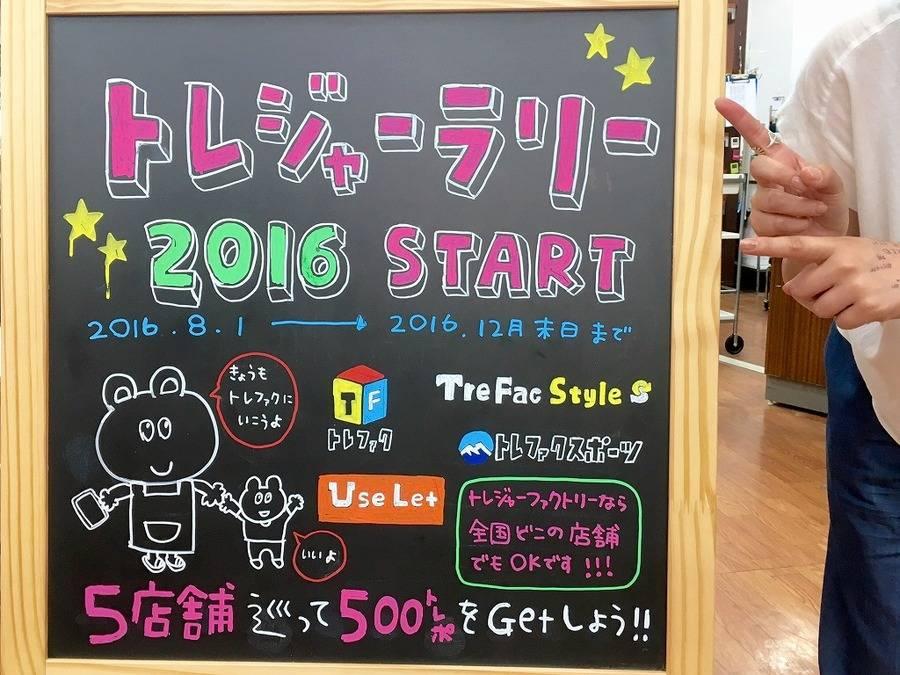 トレジャーラリー
2016 START
2016.8.1 → 2016.12月末日まで
きょうも
トレファクに
いこうよ
TF
トレファク
TreFac Style S
トレファクスポーツ
UseLet
いいよ
トレジャーファクトリーなら
全国どこの店舗
でもOKです!!!
5店舗巡って500トレポをGetしよう!!